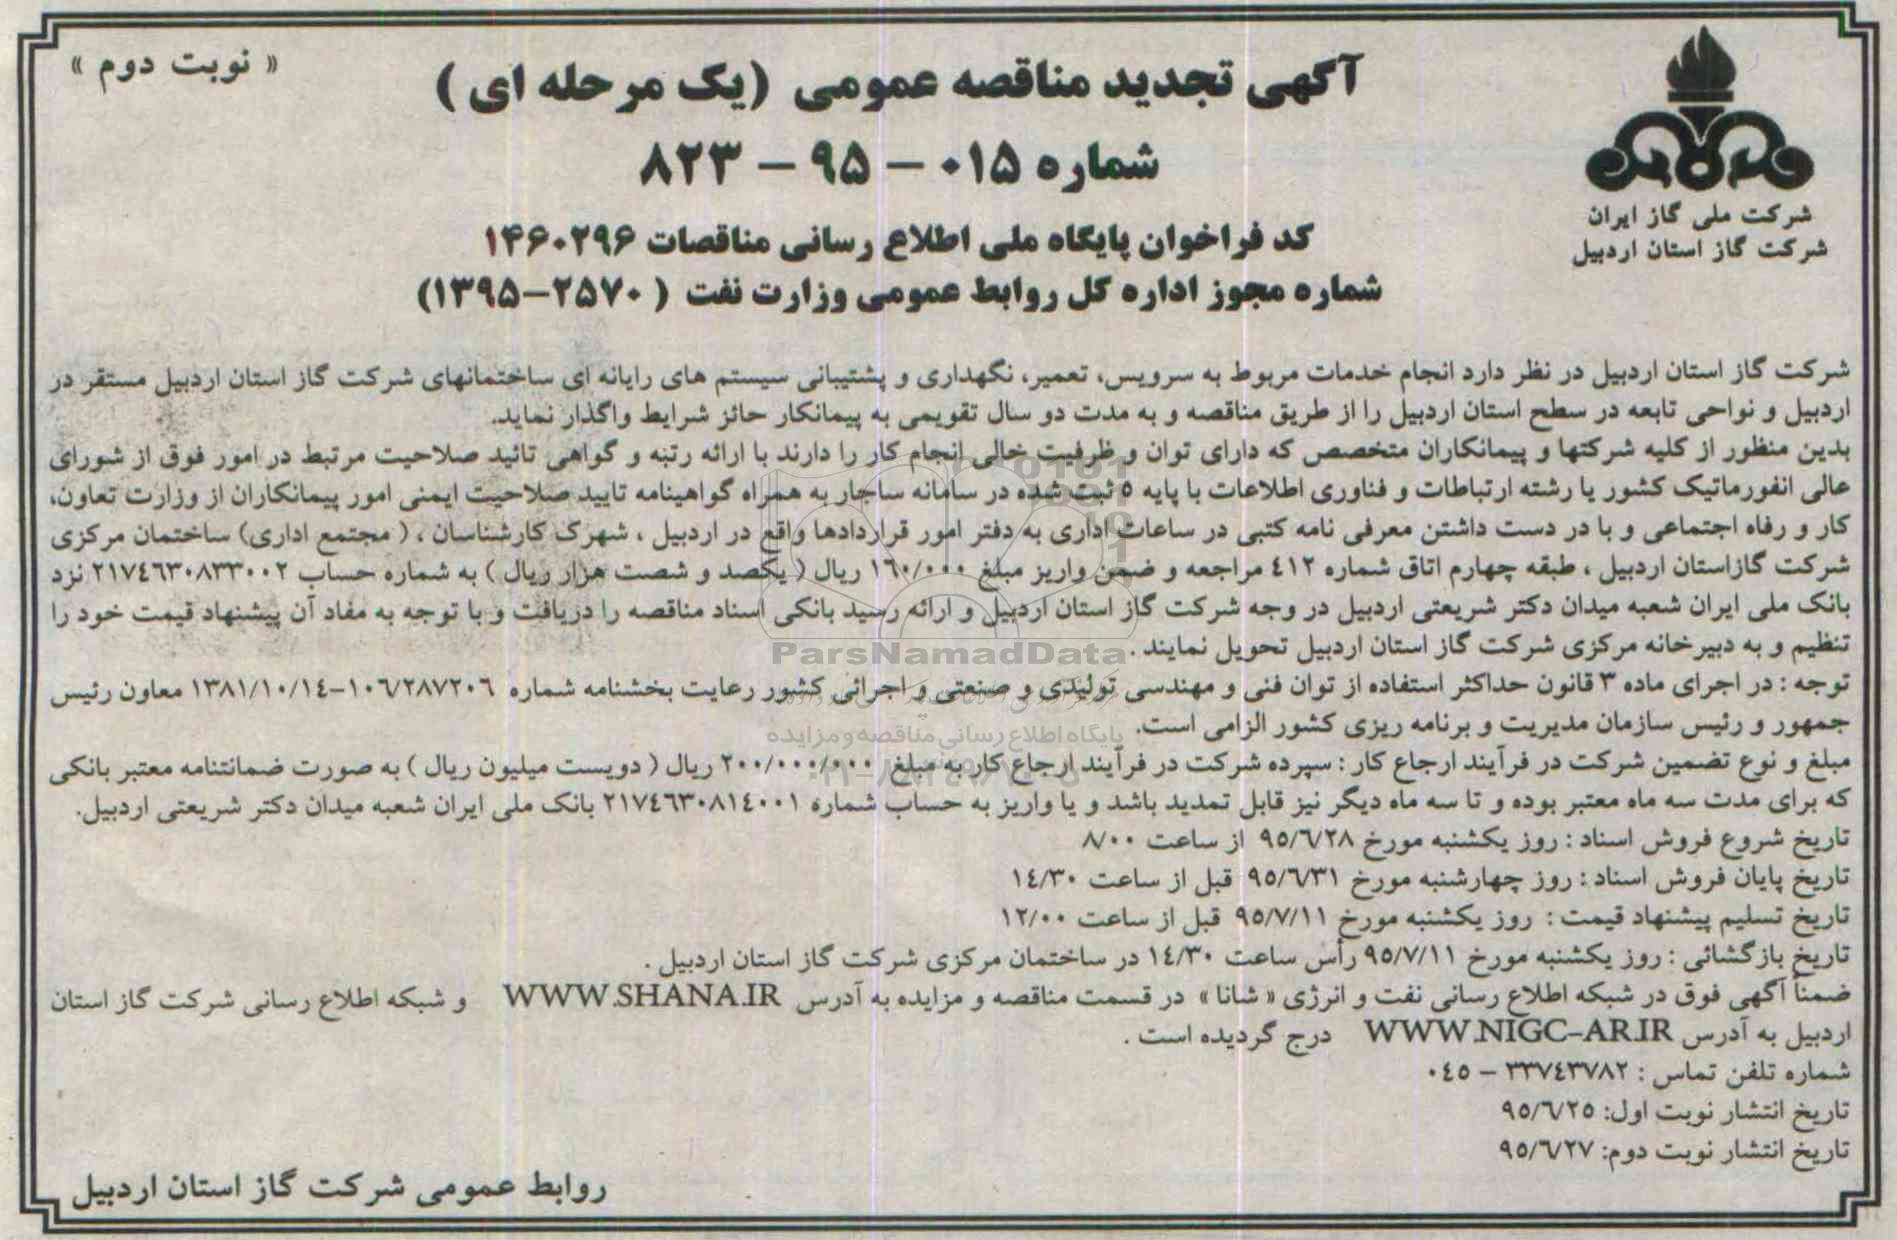 « نوبت دوم »
آگهی تجدید مناقصه عمومی (یک مرحله ای )
شماره ۰۱۵ – ۹۵ – ۸۲۳
کد فراخوان پایگاه ملی اطلاع رسانی مناقصات ۱۴۶۰۲۹۶
شماره مجوز اداره کل روابط عمومی وزارت نفت ( ۲۵۷۰–۱۳۹۵)
شرکت ملی گاز ایران
شرکت گاز استان اردبیل
شرکت گاز استان اردبیل در نظر دارد انجام خدمات مربوط به سرویس، تعمیر، نگهداری و پشتیبانی سیستم های رایانه ای ساختمانهای شرکت گاز استان اردبیل مستقر در
اردبیل و نواحی تابعه در سطح استان اردبیل را از طریق مناقصه و به مدت دو سال تقویمی به پیمانکار حائز شرایط واگذار نماید.
بدین منظور از کلیه شرکتها و پیمانکاران متخصص که دارای توان و ظرفیت خالی انجام کار را دارند با ارائه رتبه و گواهی تائید صلاحیت مرتبط در امور فوق از شورای
عالی انفورماتیک کشور یا رشته ارتباطات و فناوری اطلاعات با پایه ۵ ثبت شده در سامانه ساجار به همراه گواهینامه تایید صلاحیت ایمنی امور پیمانکاران از وزارت تعاون،
کار و رفاه اجتماعی و با در دست داشتن معرفی نامه کتبی در ساعات اداری به دفتر امور قراردادها واقع در اردبیل ، شهرک کارشناسان ، ( مجتمع اداری) ساختمان مرکزی
شرکت گازاستان اردبیل ، طبقه چهارم اتاق شماره ٤١٢ مراجعه و ضمن واریز مبلغ ۱۶۰/۰۰۰ ریال ( یکصد و شصت هزار ریال ) به شماره حساب ۲۱۷٤٦۳۰۸۳۳۰۰۲ نزد
بانک ملی ایران شعبه میدان دکتر شریعتی اردبیل در وجه شرکت گاز استان اردبیل و ارائه رسید بانکی اسناد مناقصه را دریافت و با توجه به مفاد آن پیشنهاد قیمت خود را
تنظیم و به دبیرخانه مرکزی شرکت گاز استان اردبیل تحویل نمایند .
ParsNamadData
توجه : در اجرای ماده ۳ قانون حداکثر استفاده از توان فنی و مهندسی تولیدی و صنعتی و اجرائی کشور رعایت بخشنامه شماره ۱۰٦/۲۸۷۲۰٦–۱۳۸۱/۱۰/۱٤ معاون رئیس
جمهور و رئیس سازمان مدیریت و برنامه ریزی کشور الزامی است.
پایگاه اطلاع رسانی مناقصه و مزایده
مبلغ و نوع تضمین شرکت در فرآیند ارجاع کار : سپرده شرکت در فرآیند ارجاع کار به مبلغ ۲۰۰/۰۰۰/۰۰۰ ریال ( دویست میلیون ریال ) به صورت ضمانتنامه معتبر بانکی
که برای مدت سه ماه معتبر بوده و تا سه ماه دیگر نیز قابل تمدید باشد و یا واریز به حساب شماره ۲۱۷٤٦۳۰۸۱٤۰۰۱ بانک ملی ایران شعبه میدان دکتر شریعتی اردبیل.
تاریخ شروع فروش اسناد : روز یکشنبه مورخ ۹۵/٦/۲۸ از ساعت ۸/۰۰
تاریخ پایان فروش اسناد : روز چهارشنبه مورخ ۹۵/٦/۳۱ قبل از ساعت ۱٤/۳۰
تاریخ تسلیم پیشنهاد قیمت : روز یکشنبه مورخ ۹۵/۷/۱۱ قبل از ساعت ۱۲/۰۰
تاریخ بازگشائی : روز یکشنبه مورخ ۹۵/۷/۱۱ رأس ساعت ۱٤/۳۰ در ساختمان مرکزی شرکت گاز استان اردبیل .
ضمناً آگهی فوق در شبکه اطلاع رسانی نفت و انرژی « شانا » در قسمت مناقصه و مزایده به آدرس WWW.SHANA.IR و شبکه اطلاع رسانی شرکت گاز استان
اردبیل به آدرس WWW.NIGC-AR.IR درج گردیده است .
شماره تلفن تماس : ۳۳۷٤۳۷۸۲ – ۰٤۵
تاریخ انتشار نوبت اول: ۹۵/٦/۲۵
تاریخ انتشار نوبت دوم: ۹۵/٦/۲۷
روابط عمومی شرکت گاز استان اردبیل